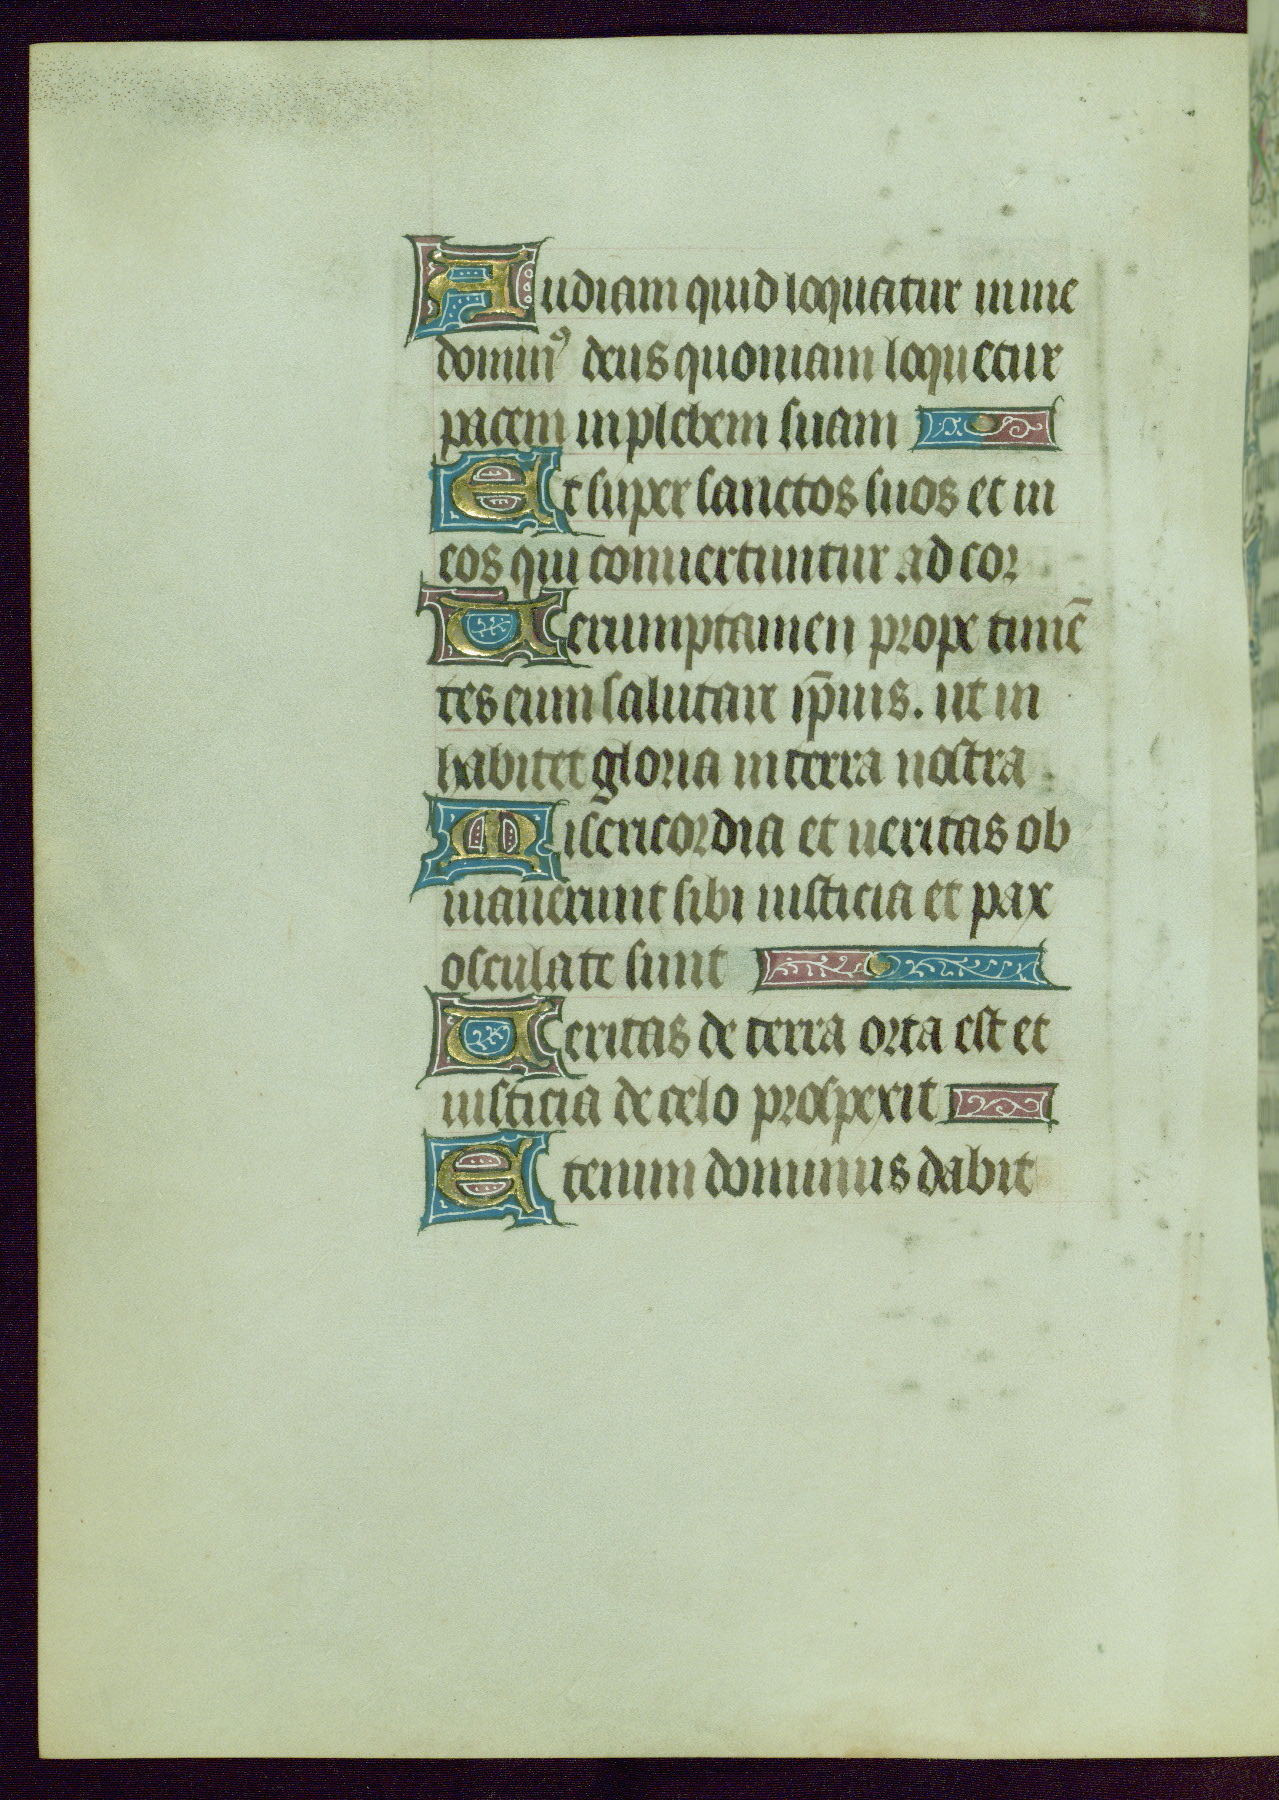 Audiam quid loquatur in me
domin⁹ deus quoniam loquetur
pacem in plebem suam
Et super sanctos suos et in
eos qui conuertuntur ad cor
Uerumptamen prope timē
tes eum salutare ip̄ius. ut in
habitet gloria in terra nostra
Misericordia et ueritas ob
uiauerunt sibi iusticia et pax
osculate sunt
Ueritas de terra orta est et
iusticia de celo prospexit
Etenim dominus dabit